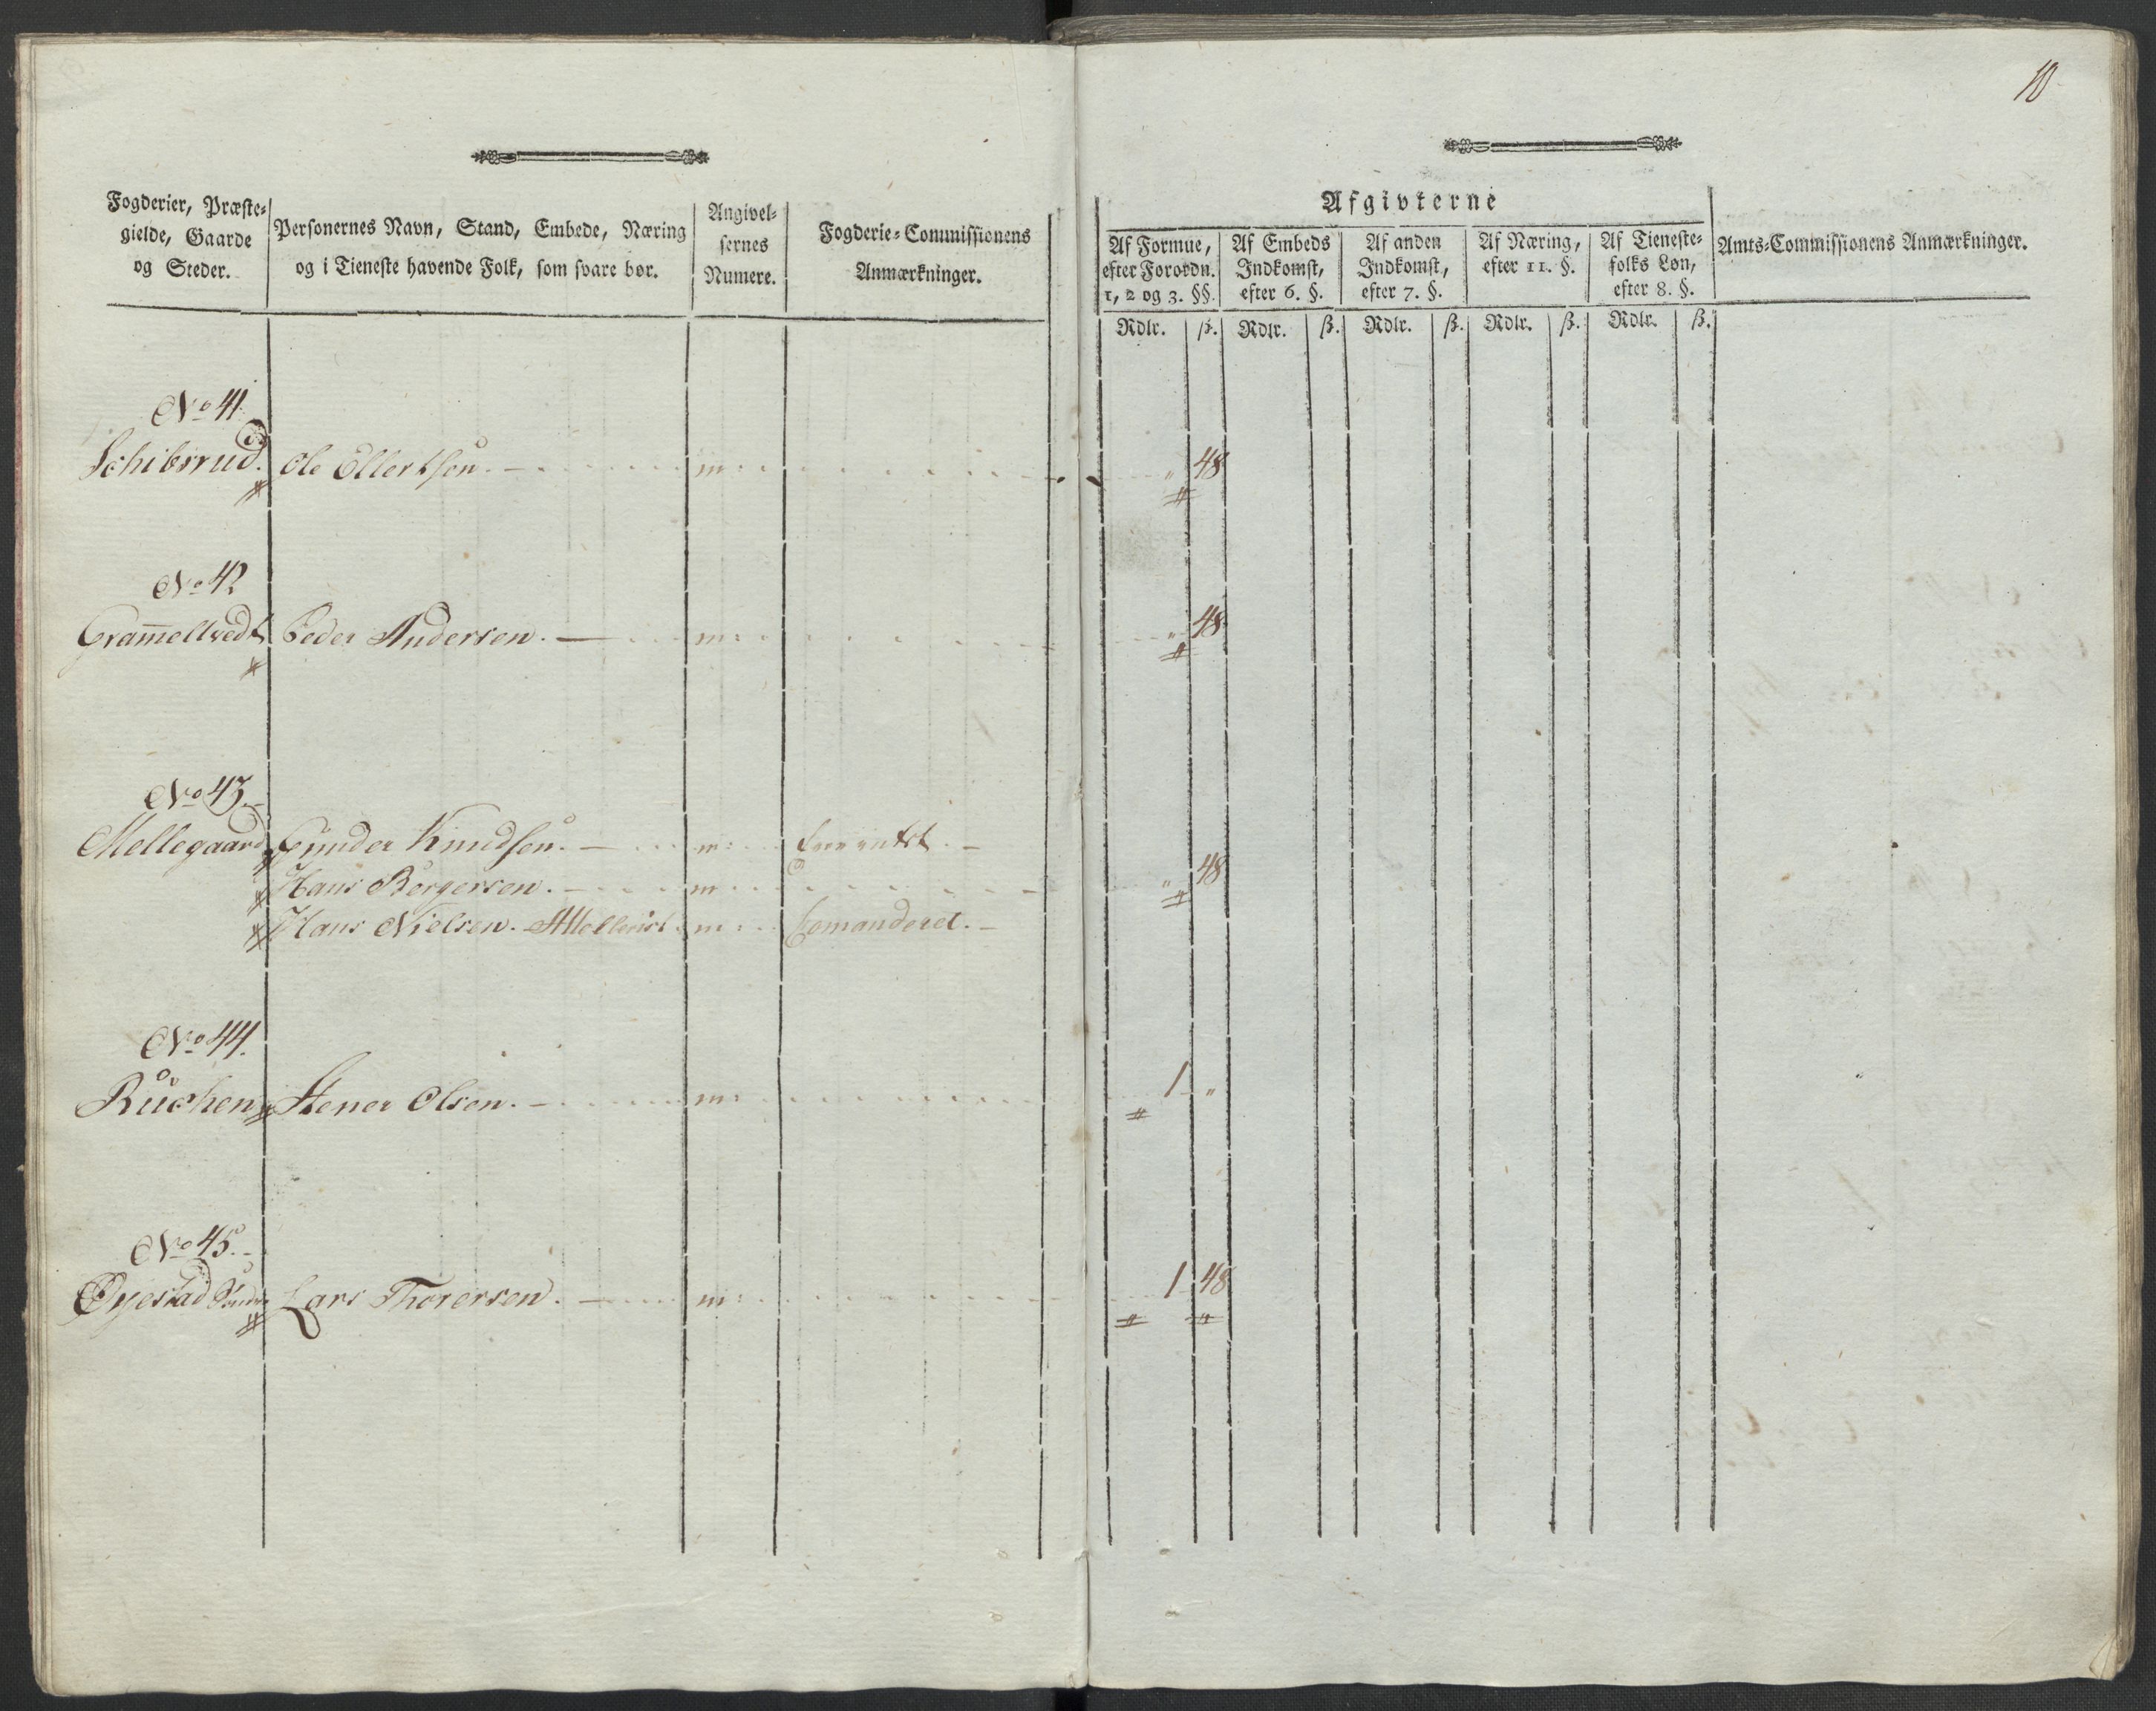 10
Fogderier, Præste-
gielde, Gaarde
og Steder.
Personernes Navn, Stand, Embede, Næring
og i Tieneste havende Folk, som svare bør.
Angivel-
sernes
Numere.
Fogderie-Commissionens
Anmærkninger.
Afgivterne
Af Formue,
efter Forordn.
1, 2 og 3. §§.
Af Embeds
Indkomst,
efter 6. §.
Af anden
Indkomst,
efter 7. §.
Af Næring,
efter 11. §.
Af Tieneste-
folks Løn,
efter 8. §.
Amts-Commissionens Anmærkninger.
Rdlr. ß. Rdlr. ß. Rdlr. ß. Rdlr. ß. Rdlr. ß.
No 41.
Schibsrud. Ole Ellertsen. - m: " 48
No 42
Gram̅eltvedt Peder Andersen. - m: " 48
No 43.
Mellegaard Gunder Knudsen. - m:
Hans Borgersen. - m " 48
Hans Nielsen. m: Comanderet. -
No 44.
Ruchen Stener Olsen. - m: 1 "
No 45.
Øyestad Lars Thorersen. - m: 1 48